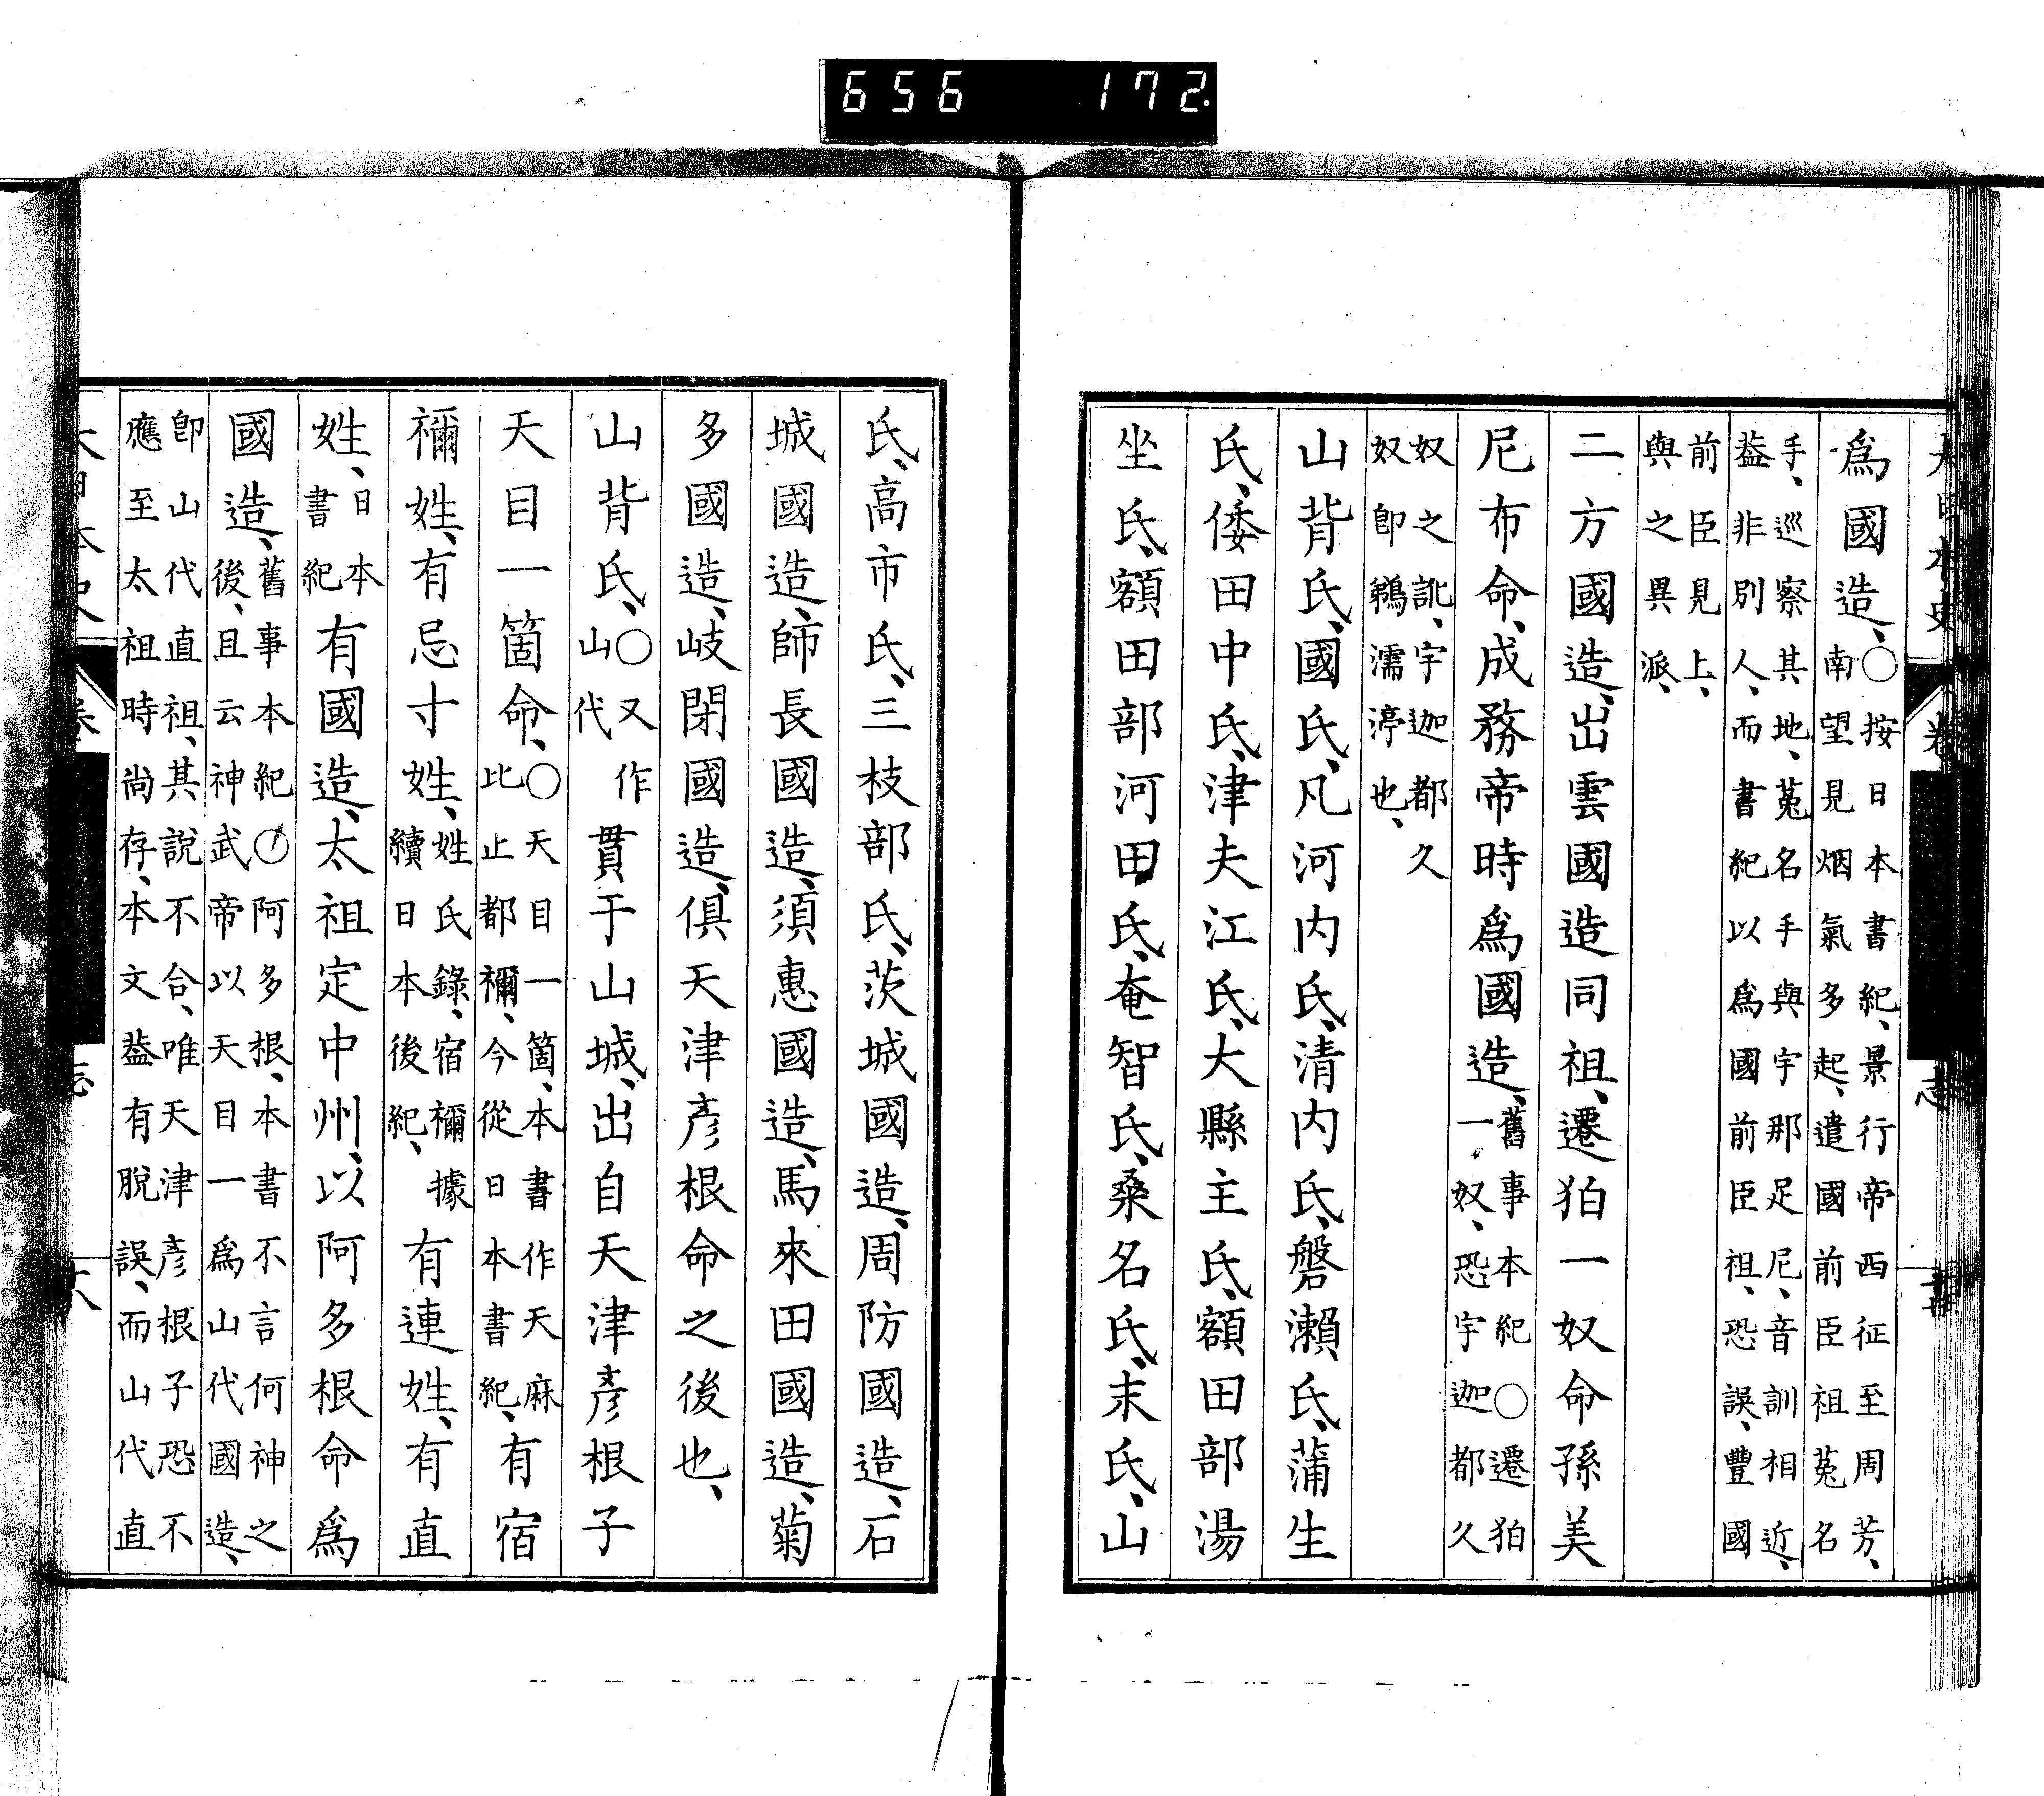 656 172
爲國造、○按日本書紀、景行帝西征至周芳、
南望見烟氣多起、遣國前臣祖菟名
手、巡察其地、菟名手與宇那足尼、音訓相近、
葢非別人、而書紀以爲國前臣祖、恐誤、豐國
前臣見上、
與之異派、
二方國造、出雲國造同祖、遷狛一奴命孫美
尼布命、成務帝時爲國造、舊事本紀○遷狛
一奴、恐宇迦都久
奴之訛、宇迦都久
奴卽鵜濡渟也、
山背氏、國氏、凡河内氏、清内氏、磐瀨氏、蒲生
氏、倭田中氏、津夫江氏、大縣主氏、額田部湯
坐氏、額田部河田氏、奄智氏、桑名氏、末氏、山
氏、高市氏、三枝部氏、茨城國造、周防國造、石
城國造、師長國造、須惠國造、馬來田國造、菊
多國造、岐閉國造、俱天津彥根命之後也、
山背氏、○又作
山代
貫于山城、出自天津彥根子
天目一箇命、○天目一箇、本書作天麻
比止都禰、今從日本書紀、
有宿
禰姓、有忌寸姓、姓氏錄、宿禰據
續日本後紀、
有連姓、有直
姓、日本
書紀
有國造、太祖定中州、以阿多根命爲
國造、舊事本紀○阿多根、本書不言何神之
後、且云神武帝以天目一爲山代國造、
卽山代直祖、其說不合、唯天津彥根子恐不
應至太祖時尚存、本文葢有脫誤、而山代直